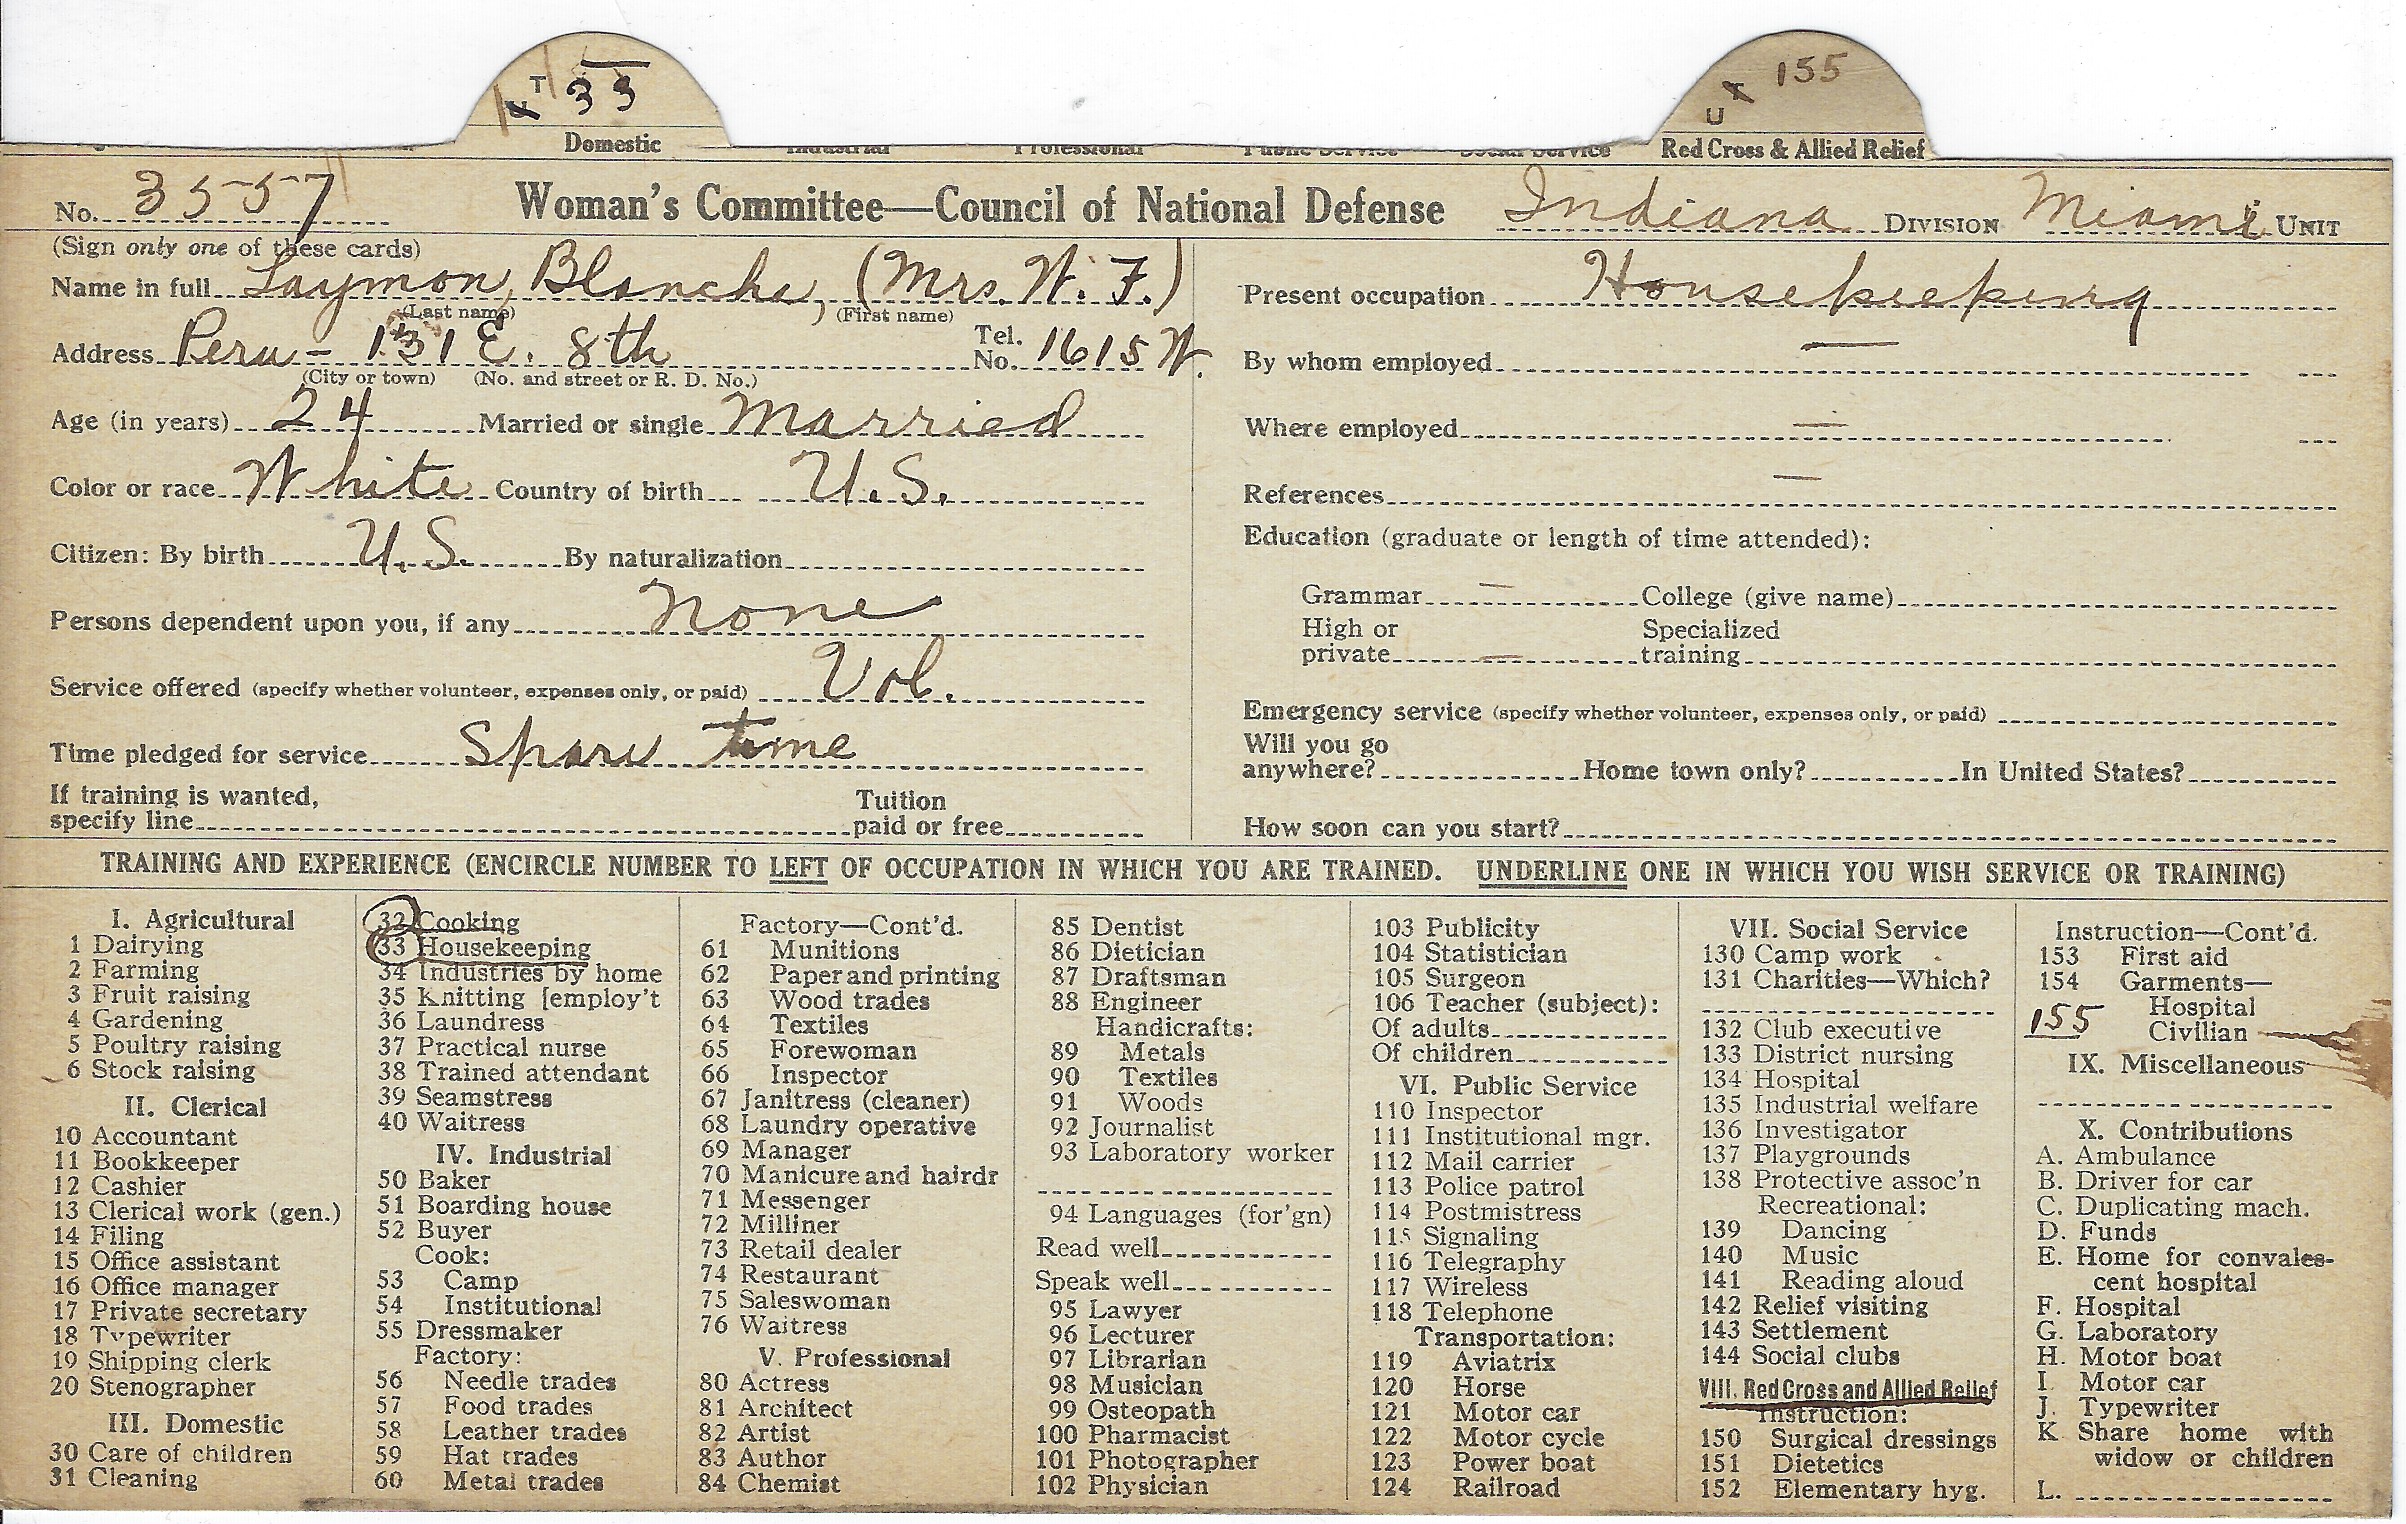 T 33
U T 155
Domestic
Red Cross & Allied Relief
No. 3557 Woman's Committee—Council of National Defense Indiana DIVISION Miami UNIT
(Sign only one of these cards)
Name in full Laymon, Blanche, (Mrs. W. F.)
(Last name) (First name)
Address Peru - 131 E. 8th Tel. No. 1615 W.
(City or town) (No. and street or R. D. No.)
Age (in years) 24 Married or single Married
Color or race White Country of birth U.S.
Citizen: By birth U.S. By naturalization
Persons dependent upon you, if any None
Service offered (specify whether volunteer, expenses only, or paid) Vol.
Time pledged for service Spare time
If training is wanted,
specify line Tuition paid or free
Present occupation Housekeeping
By whom employed —
Where employed —
References —
Education (graduate or length of time attended):
Grammar — College (give name)
High or private — Specialized training
Emergency service (specify whether volunteer, expenses only, or paid)
Will you go anywhere? Home town only? In United States?
How soon can you start?
TRAINING AND EXPERIENCE (ENCIRCLE NUMBER TO LEFT OF OCCUPATION IN WHICH YOU ARE TRAINED. UNDERLINE ONE IN WHICH YOU WISH SERVICE OR TRAINING)
I. Agricultural
1 Dairying
2 Farming
3 Fruit raising
4 Gardening
5 Poultry raising
6 Stock raising
II. Clerical
10 Accountant
11 Bookkeeper
12 Cashier
13 Clerical work (gen.)
14 Filing
15 Office assistant
16 Office manager
17 Private secretary
18 Typewriter
19 Shipping clerk
20 Stenographer
III. Domestic
30 Care of children
31 Cleaning
32 Cooking
33 Housekeeping
34 Industries by home
35 Knitting [employ't
36 Laundress
37 Practical nurse
38 Trained attendant
39 Seamstress
40 Waitress
IV. Industrial
50 Baker
51 Boarding house
52 Buyer
Cook:
53 Camp
54 Institutional
55 Dressmaker
Factory:
56 Needle trades
57 Food trades
58 Leather trades
59 Hat trades
60 Metal trades
Factory—Cont'd.
61 Munitions
62 Paper and printing
63 Wood trades
64 Textiles
65 Forewoman
66 Inspector
67 Janitress (cleaner)
68 Laundry operative
69 Manager
70 Manicure and hairdr
71 Messenger
72 Milliner
73 Retail dealer
74 Restaurant
75 Saleswoman
76 Waitress
V. Professional
80 Actress
81 Architect
82 Artist
83 Author
84 Chemist
85 Dentist
86 Dietician
87 Draftsman
88 Engineer
Handicrafts:
89 Metals
90 Textiles
91 Woods
92 Journalist
93 Laboratory worker
94 Languages (for'gn)
Read well
Speak well
95 Lawyer
96 Lecturer
97 Librarian
98 Musician
99 Osteopath
100 Pharmacist
101 Photographer
102 Physician
103 Publicity
104 Statistician
105 Surgeon
106 Teacher (subject):
Of adults
Of children
VI. Public Service
110 Inspector
111 Institutional mgr.
112 Mail carrier
113 Police patrol
114 Postmistress
115 Signaling
116 Telegraphy
117 Wireless
118 Telephone
Transportation:
119 Aviatrix
120 Horse
121 Motor car
122 Motor cycle
123 Power boat
124 Railroad
VII. Social Service
130 Camp work
131 Charities—Which?
132 Club executive
133 District nursing
134 Hospital
135 Industrial welfare
136 Investigator
137 Playgrounds
138 Protective assoc'n
Recreational:
139 Dancing
140 Music
141 Reading aloud
142 Relief visiting
143 Settlement
144 Social clubs
VIII. Red Cross and Allied Relief
Instruction:
150 Surgical dressings
151 Dietetics
152 Elementary hyg.
Instruction—Cont'd.
153 First aid
154 Garments—
Hospital
155 Civilian
IX. Miscellaneous
X. Contributions
A. Ambulance
B. Driver for car
C. Duplicating mach.
D. Funds
E. Home for convales-
cent hospital
F. Hospital
G. Laboratory
H. Motor boat
I. Motor car
J. Typewriter
K Share home with
widow or children
L.